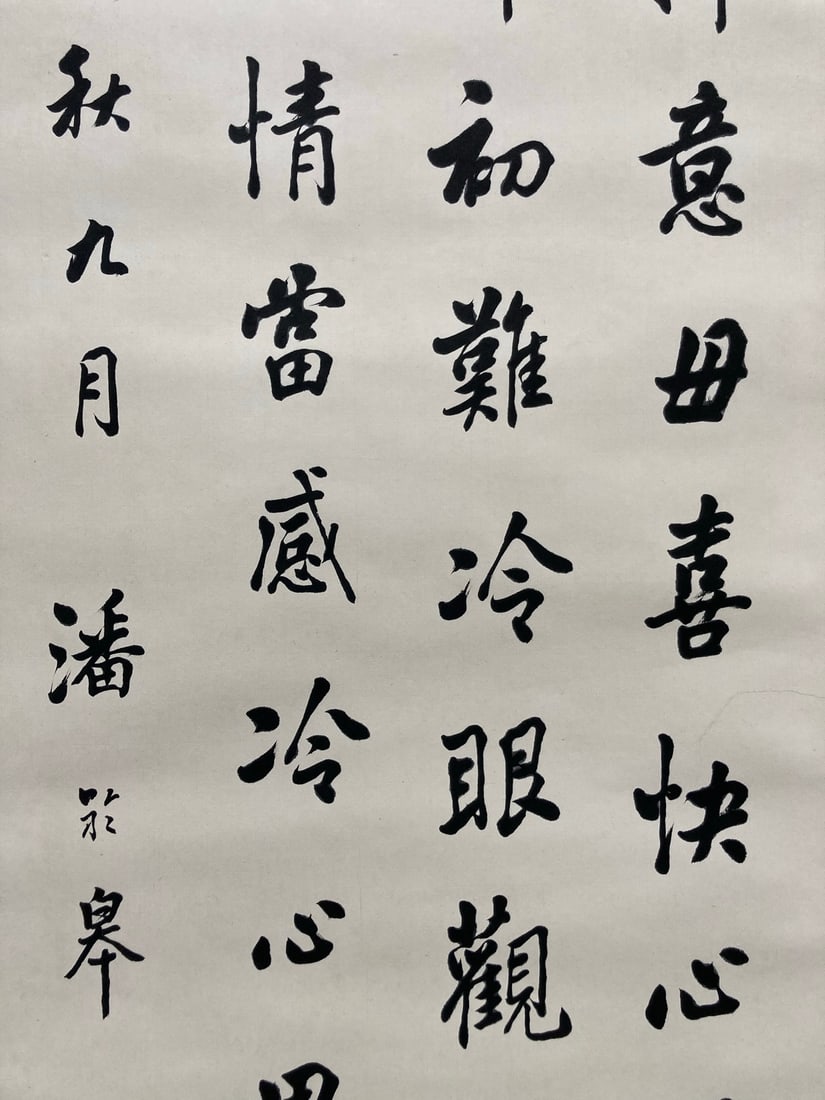 意毋喜快心
初難冷眼觀
情當感冷心
秋九月 潘齡皋